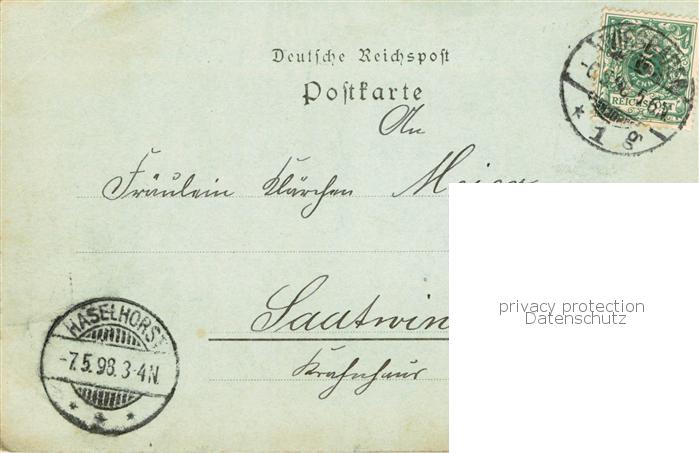 Deutsche Reichspost
Postkarte
5
REICHSPOST
* 1 g
An
Fräulein Klärchen
privacy protection
Datenschutz
Saatwin
HASELHORST
-7.5.98.3-4N.
Krahnhaus